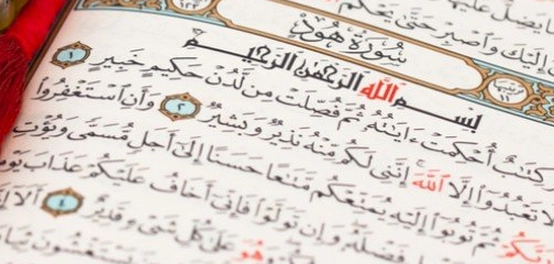 يَضِلُّ عَلَيْهَا
إِلَيْكَ وَاصْبِرْ حَتَّىٰ يَحْكُمَ
سُورَةُ هُودٍ
بِسْمِ اللَّهِ الرَّحْمَٰنِ الرَّحِيمِ
كِتَٰبٌ أُحْكِمَتْ ءَايَٰتُهُۥ ثُمَّ فُصِّلَتْ مِن لَّدُنْ حَكِيمٍ خَبِيرٍ ١
تَعْبُدُوٓا۟ إِلَّا ٱللَّهَ إِنَّنِى لَكُم مِّنْهُ نَذِيرٌ وَبَشِيرٌ ٢ وَأَنِ ٱسْتَغْفِرُوا۟
ثُمَّ تُوبُوٓا۟ إِلَيْهِ يُمَتِّعْكُم مَّتَٰعًا حَسَنًا إِلَىٰٓ أَجَلٍ مُّسَمًّى وَيُؤْتِ
فَضْلَهُۥ وَإِن تَوَلَّوْا۟ فَإِنِّىٓ أَخَافُ عَلَيْكُمْ عَذَابَ يَوْمٍ
عَلَىٰ كُلِّ شَىْءٍ قَدِيرٌ ٤ أَلَآ
يَسْتَغْشُونَ